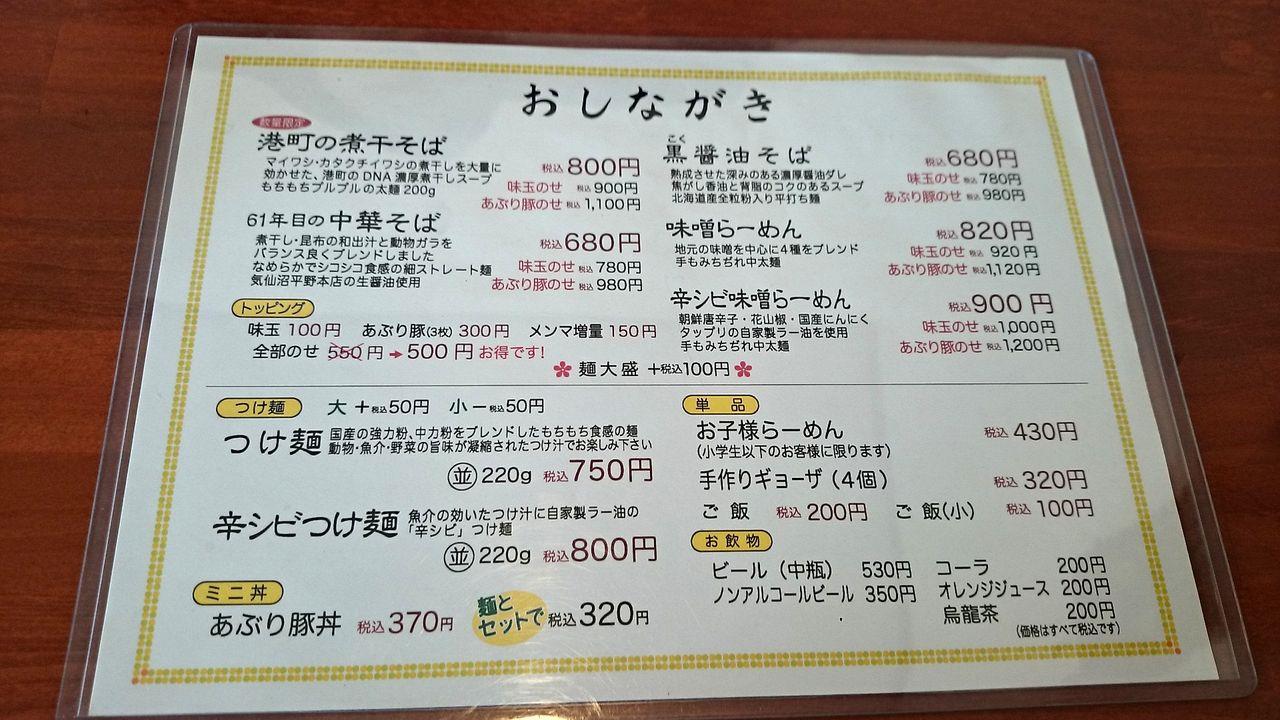 おしながき
数量限定
港町の煮干そば
マイワシ・カタクチイワシの煮干しを大量に
効かせた、港町のDNA濃厚煮干しスープ
もちもちプルプルの太麺200g
税込800円
味玉のせ 税込900円
あぶり豚のせ 税込1,100円
61年目の中華そば
煮干し・昆布の和出汁と動物ガラを
バランス良くブレンドしました
なめらかでシコシコ食感の細ストレート麺
気仙沼平野本店の生醤油使用
税込680円
味玉のせ 税込780円
あぶり豚のせ 税込980円
トッピング
味玉 100円 あぶり豚(3枚) 300円 メンマ増量 150円
全部のせ 550円 → 500円お得です!
こく
黒醤油そば
熟成させた深みのある濃厚醤油ダレ
焦がし香油と背脂のコクのあるスープ
北海道産全粒粉入り平打ち麺
税込680円
味玉のせ 税込780円
あぶり豚のせ 税込980円
味噌らーめん
地元の味噌を中心に4種をブレンド
手もみちぢれ中太麺
税込820円
味玉のせ 税込920円
あぶり豚のせ 税込1,120円
辛シビ味噌らーめん
朝鮮唐辛子・花山椒・国産にんにく
タップリの自家製ラー油を使用
手もみちぢれ中太麺
税込900円
味玉のせ 税込1,000円
あぶり豚のせ 税込1,200円
麺大盛 +税込100円
つけ麺 大+税込50円 小-税込50円
つけ麺
国産の強力粉、中力粉をブレンドしたもちもち食感の麺
動物・魚介・野菜の旨味が凝縮されたつけ汁でお楽しみ下さい
並 220g 税込750円
辛シビつけ麺
魚介の効いたつけ汁に自家製ラー油の
「辛シビ」つけ麺
並 220g 税込800円
ミニ丼
あぶり豚丼 税込370円
麺と
セットで 税込320円
単品
お子様らーめん 税込430円
(小学生以下のお客様に限ります)
手作りギョーザ(4個) 税込320円
ご飯 税込200円 ご飯(小) 税込100円
お飲物
ビール(中瓶) 530円 コーラ 200円
ノンアルコールビール 350円 オレンジジュース 200円
烏龍茶 200円
(価格はすべて税込です)